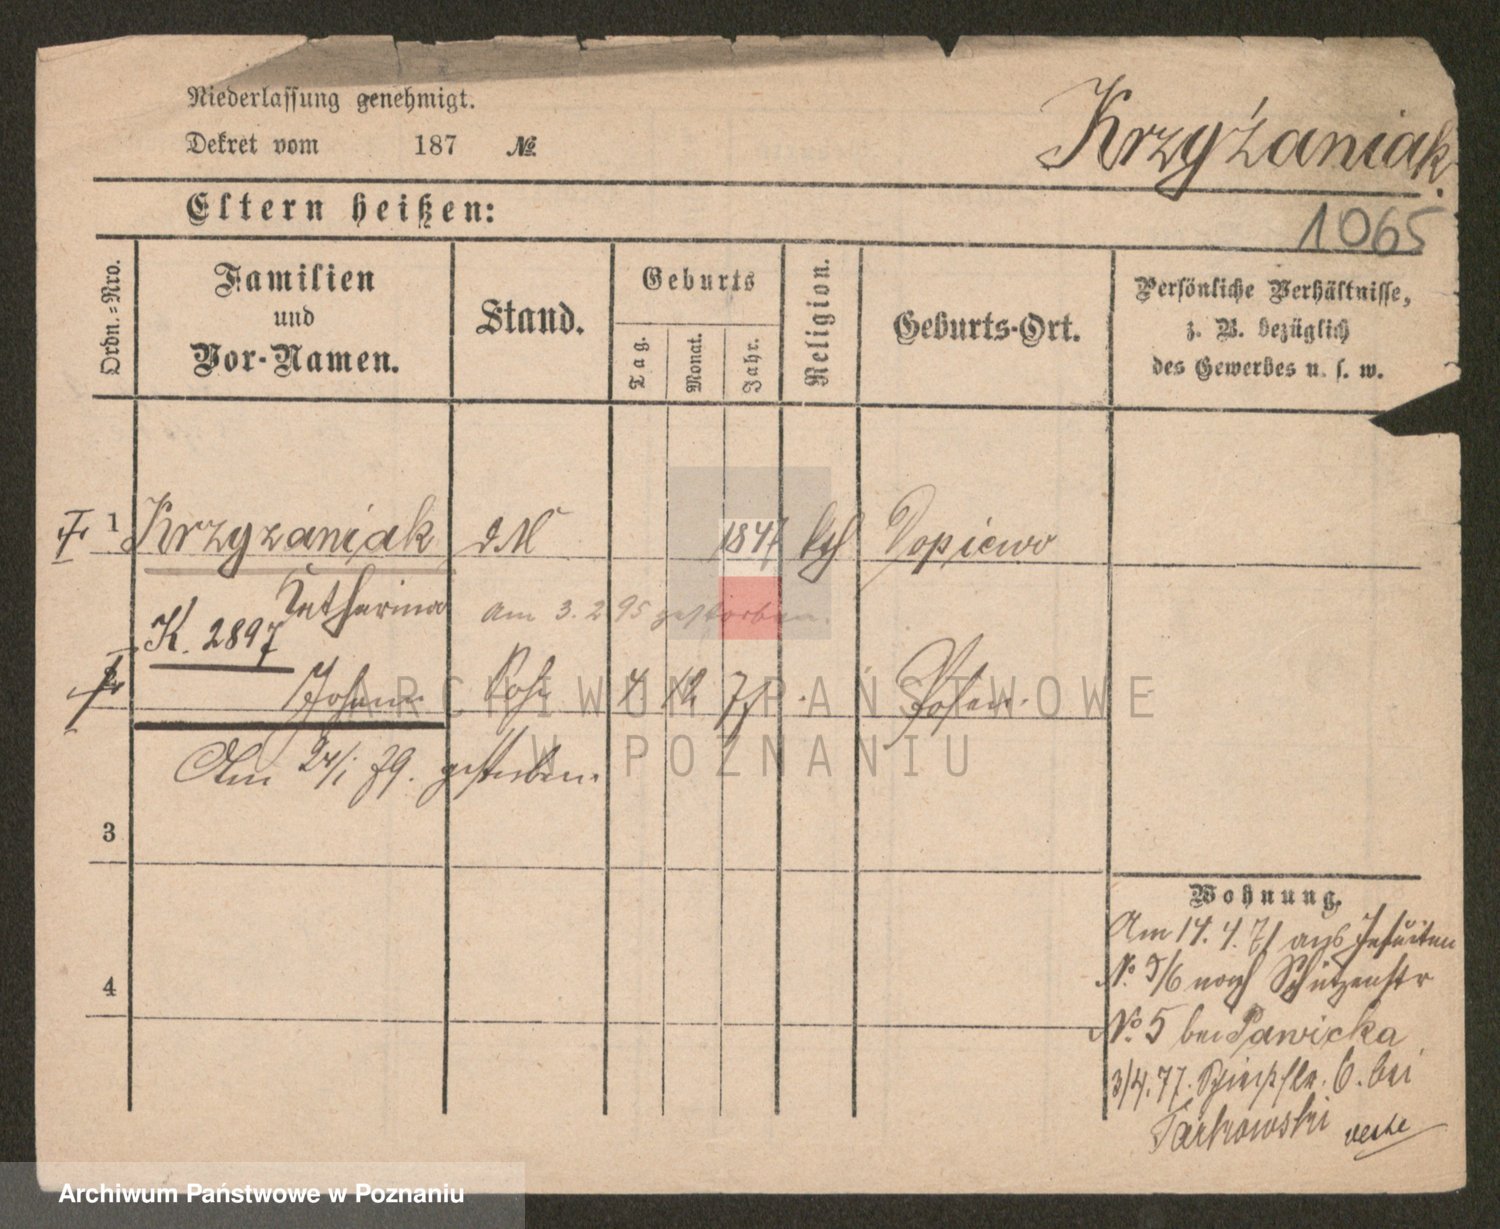 Niederlassung genehmigt.
Dekret vom 187 №
Krzyżaniak.
Eltern heißen:
1065
Ordn.=Nro.
Familien
und
Vor-Namen.
Stand.
Geburts
Tag.
Monat.
Jahr.
Religion.
Geburts-Ort.
Persönliche Verhältnisse,
z. B. bezüglich
des Gewerbes u. s. w.
1 Krzyzaniak dM 1847 kth Dopiewo
Katharina am 3. 2 95 gestorben.
K. 2897
Johann Sohn 7. 12 Posen.
Am 24/1 79. gestorben.
3
4
Wohnung.
Am 14. 4. 71 aus Jesuiten
No. 5/6 nach Schützenstr
No. 5 bei Pawicka
3/4. 77. 6. bei
Tarkowski
ARCHIWUM PAŃSTWOWE
W POZNANIU
Archiwum Państwowe w Poznaniu